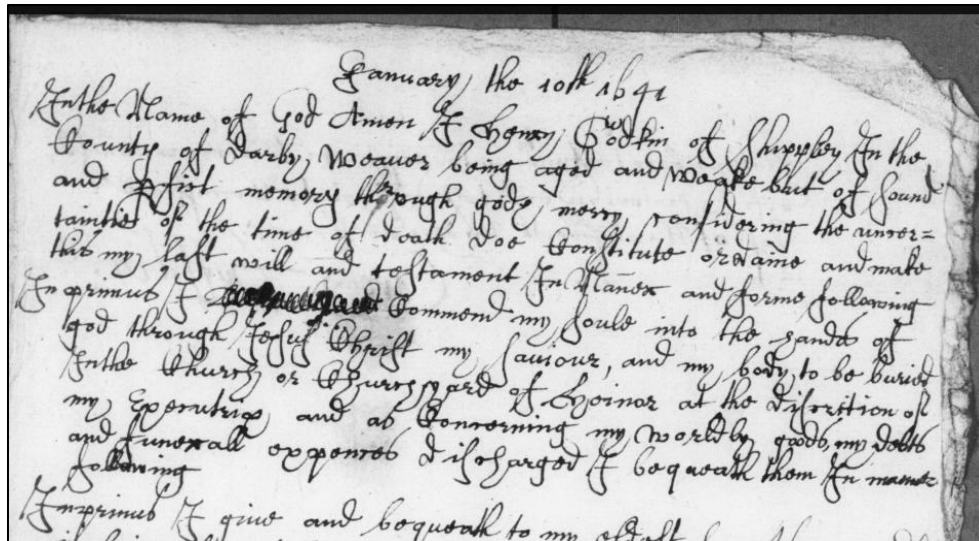 January the 10th 1641
In the Name of God Amen I Henry Godkin of Shippley In the
County of Darby, Weaver being aged and Weake but of sound
and pfict memory through gods mercy, considering the uncer=
taintie of the time of death doe Constitute ordaine and make
this my last will and testament In Maner and forme following
Inprimus I Commend my soule into the hands of
god through Jesus Christ my saviour, and my body, to be buried
In the Church or Church yard of Heinor at the discrition of
my Executrix and as Concerning my worldly goods, my debts
and funerall expences discharged I bequeath them In manner
following
Inprimus I give and bequeath to my eldest